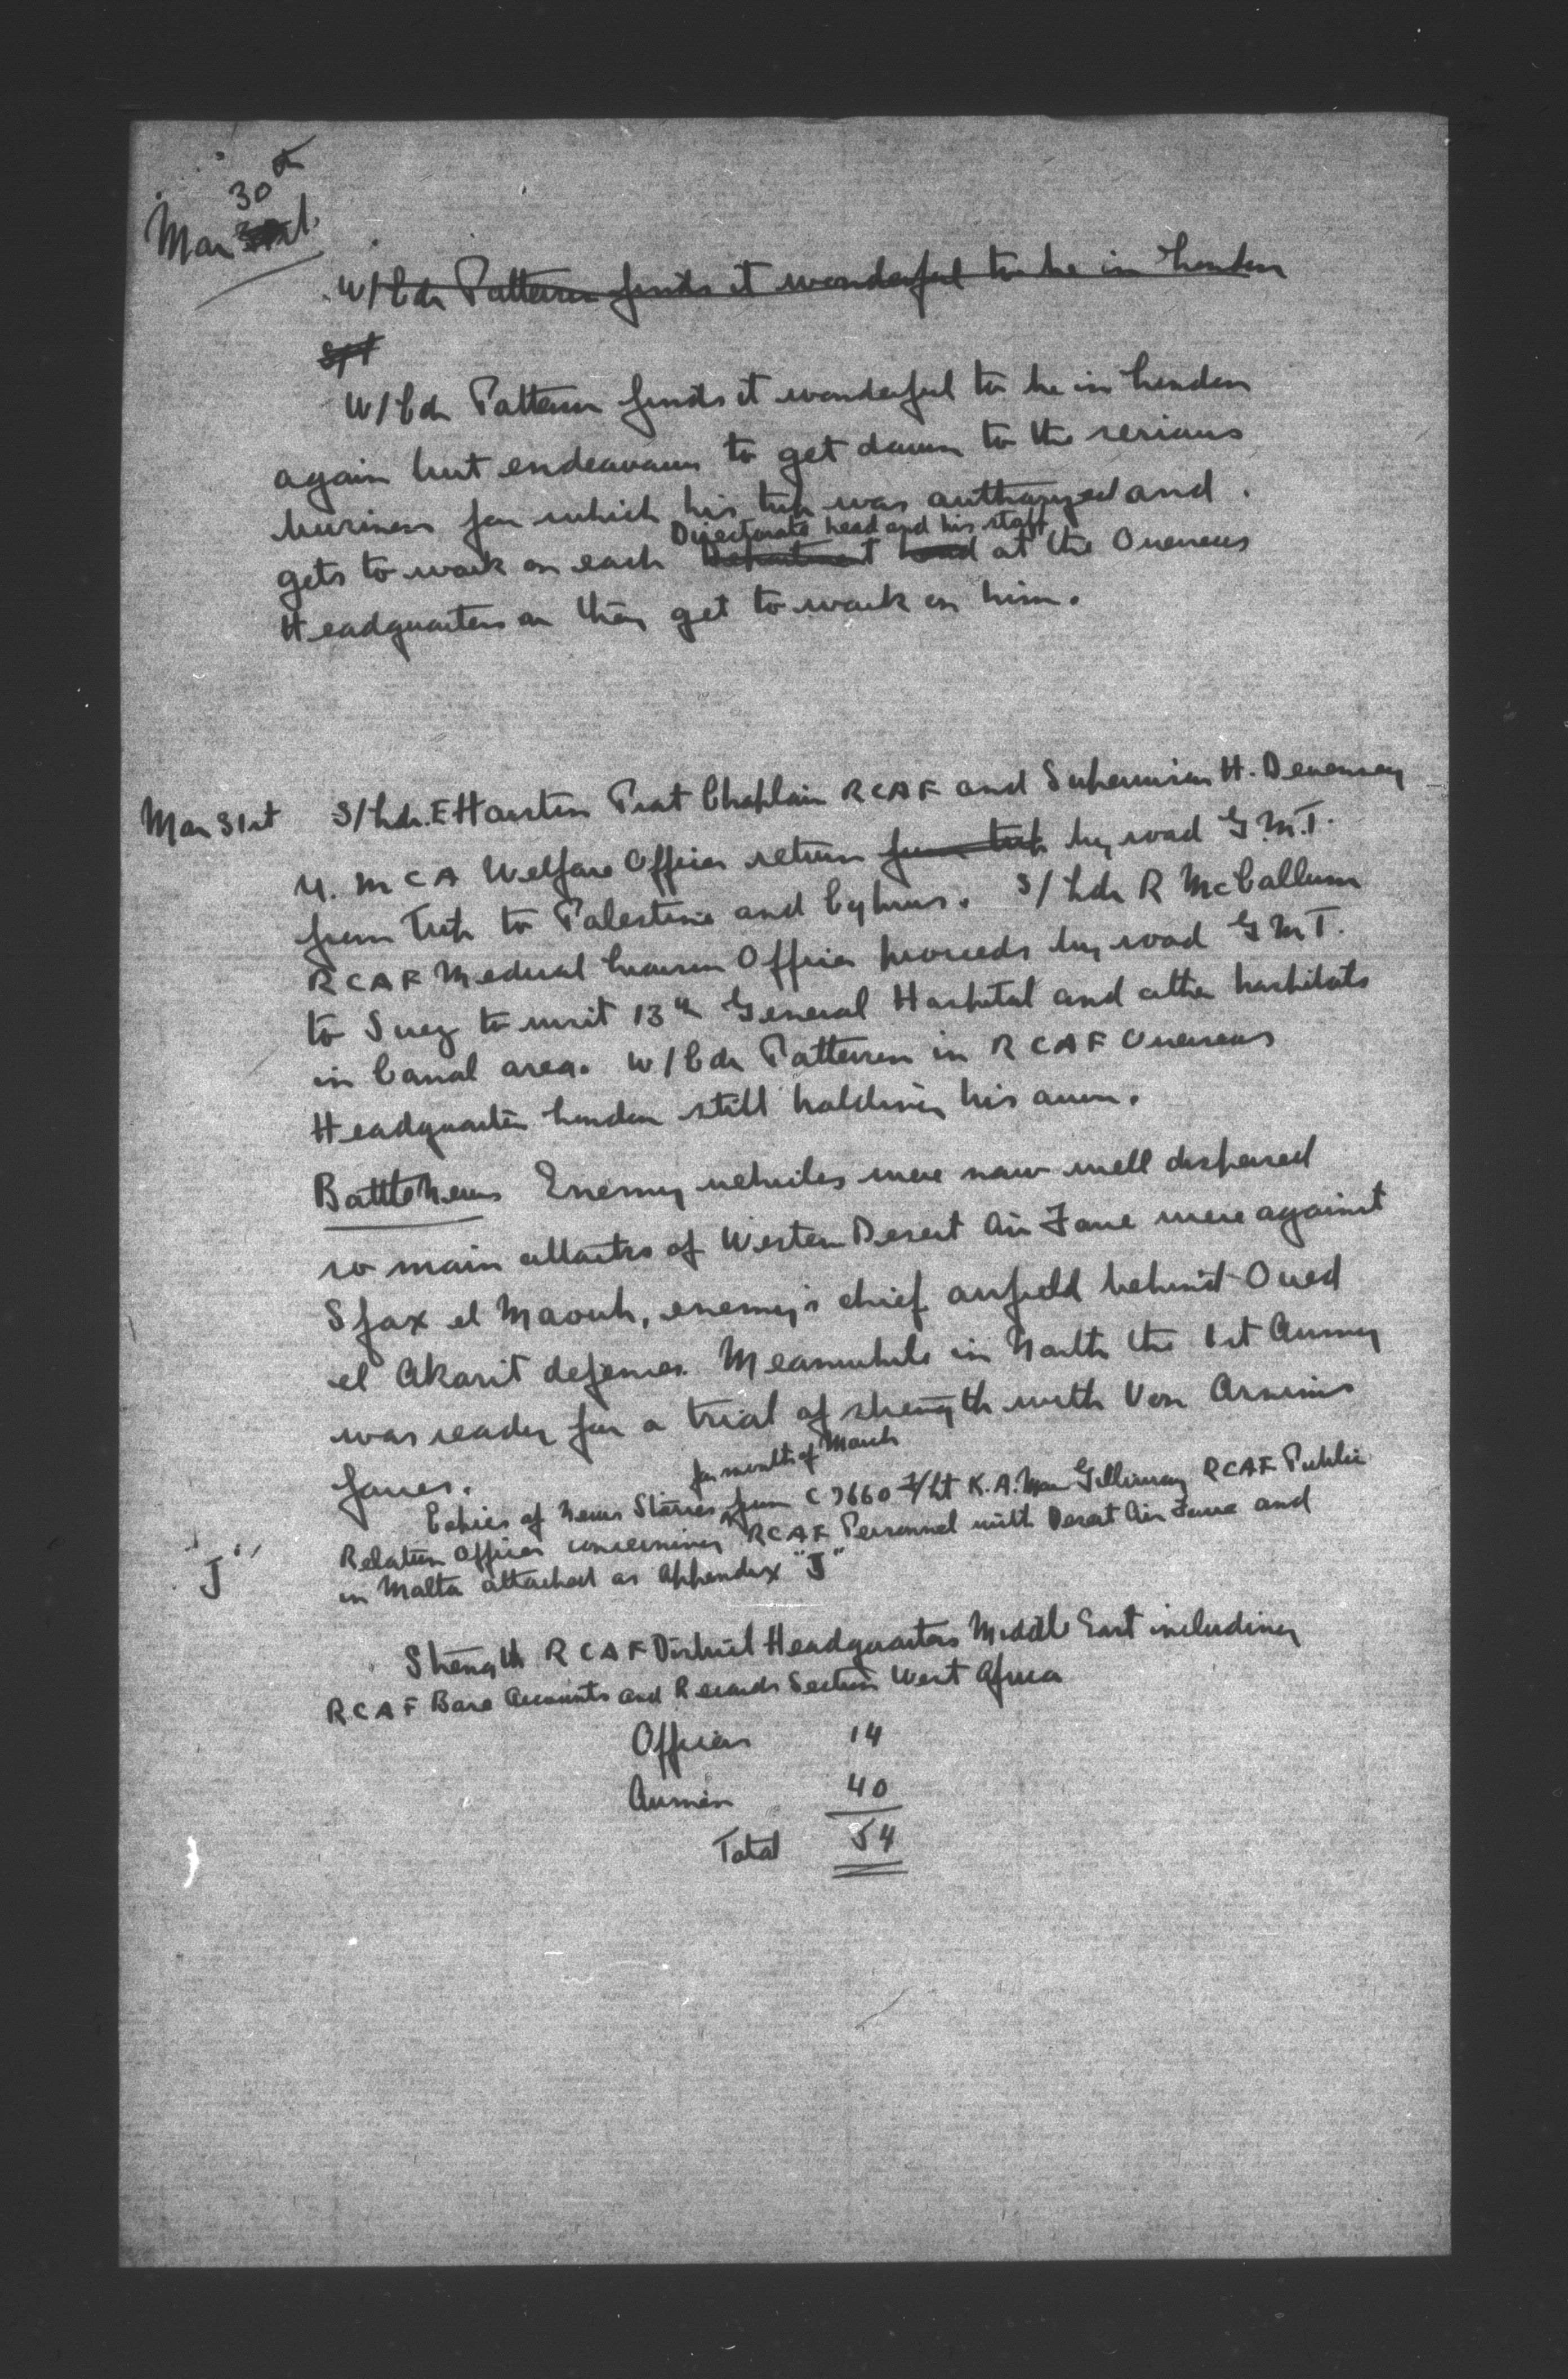 30th
Mar 31st.
W/Cdr Patterson finds it wonderful to be in London
S/
W/Cdr Patterson finds it wonderful to be in London
again but endeavours to get down to the serious
business for which his trip was authorized and
Directorate head and his staff
gets to work on each Department head at the Overseas
Headquarters or they get to work on him.
Mar 31st S/Ldr. E Harston Prot Chaplain RCAF and Supervisor H. Devensey
Y. M C A Welfare Officer return from trip by road G.M.T.
from Trip to Palestine and Cyprus. S/Ldr R McCallum
RCAF Medical Liaison Officer proceeds by road G M T.
to Suez to visit 13th General Hospital and other hospitals
in Canal area. W/Cdr Patterson in RCAF Overseas
Headquarters London still holding his own.
Battle News Enemy vehicles were now well dispersed
so main attacks of Western Desert Air Force were against
Sfax el Maouh, enemy's chief airfield behind Oued
el Akarit defences. Meanwhile in North the 1st Army
was ready for a trial of strength with Von Arnims
forces.
for month of March
Copies of News Stories from C 7660 F/Lt K.A. Mac Gillivray RCAF Public
Relation Officer concerning RCAF Personnel with Desert Air Force and
"J" in Malta attached as Appendix "J"
Strength RCAF District Headquarters Middle East including
RCAF Base Accounts and Records Section West Africa
Officers 14
Airmen 40
Total 54